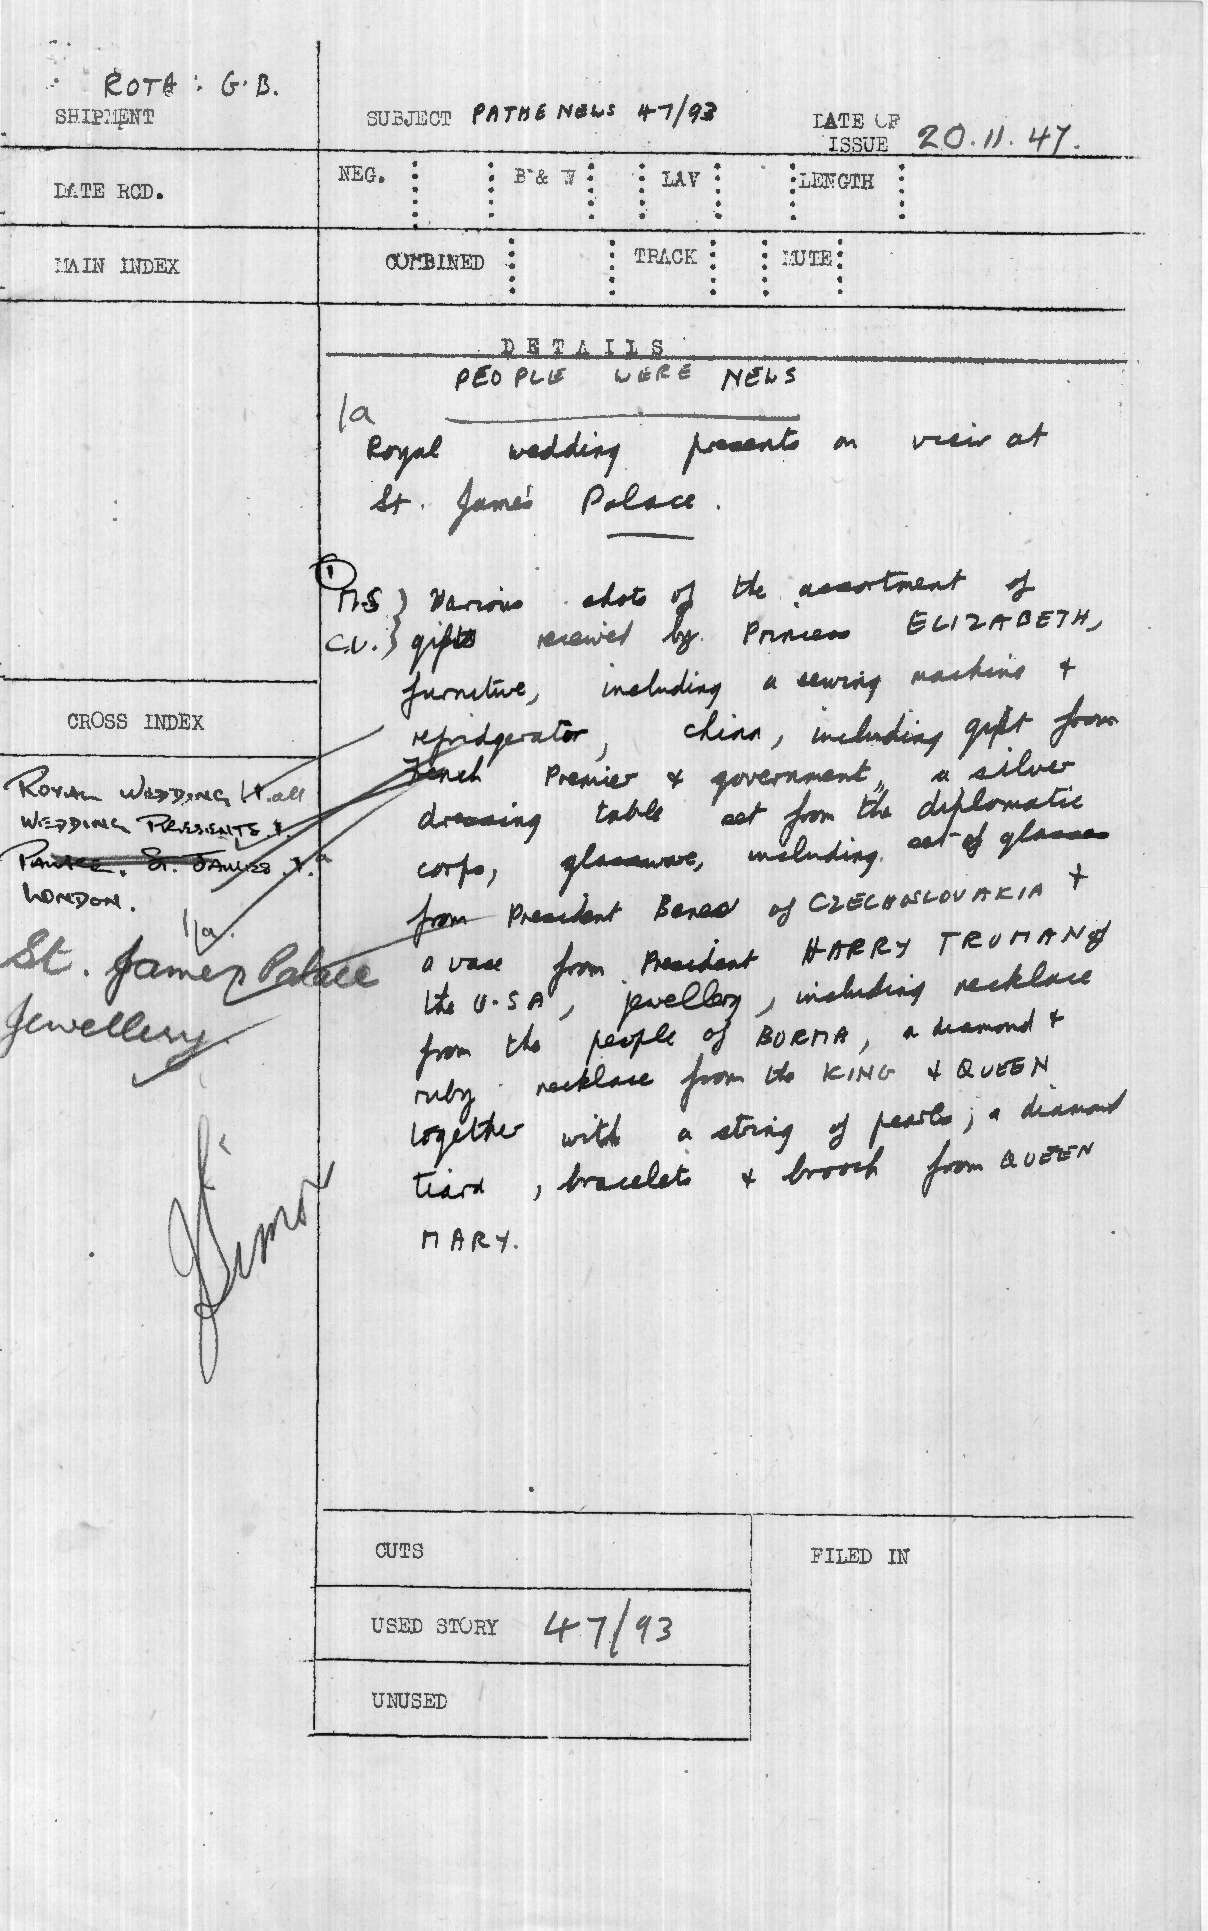 ROTA : G.B.
SHIPMENT
SUBJECT PATHE NEWS 47/93
DATE OF
ISSUE 20.11.47.
DATE RCD.
NEG. B & W LAV LENGTH
MAIN INDEX
COMBINED TRACK MUTE
DETAILS
PEOPLE WERE NEWS
1a
Royal wedding presents on view at
St. James's Palace.
1
M.S } Various shots of the assortment of
C.U. } gifts received by Princess ELIZABETH,
furniture, including a sewing machine &
refridgerator, china, including gift from
French Premier & government, a silver
dressing table set from the diplomatic
corps, glassware, including set of glasses
from President Benes of CZECHOSLOVAKIA &
a vase from President HARRY TRUMAN of
the U.S.A, jewellery, including necklace
from the people of BURMA, a diamond &
ruby necklace from the KING & QUEEN
together with a string of pearls, a diamond
tiara, bracelets & brooch from QUEEN
MARY.
CROSS INDEX
ROYAL WEDDING all
WEDDING PRESENTS.
PALACE. ST. JAMES
LONDON.
1/a.
St. James Palace
Jewellery.
CUTS
FILED IN
USED STORY 47/93
UNUSED